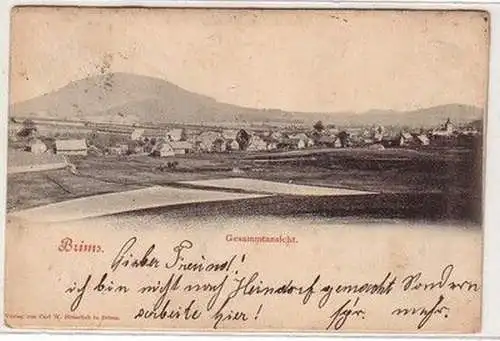 Brims.
Gesammtansicht.
Lieber Freund!
ich bin nicht nach Heindorf gemacht Sondern
arbeite hier! mehr.
Verlag von Carl W. in Brims.